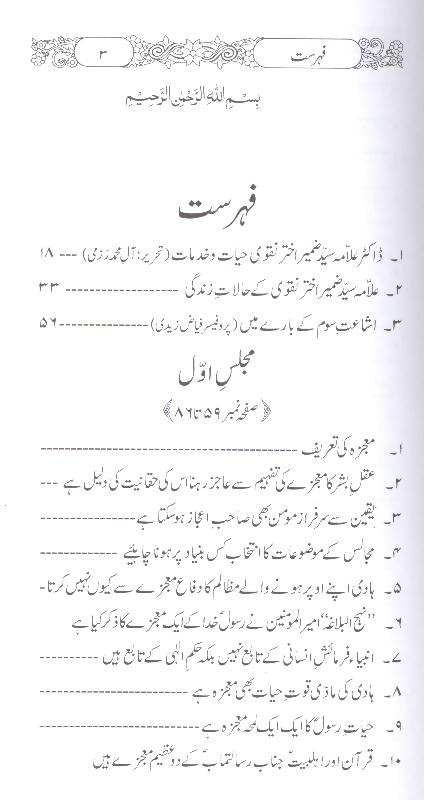 فہرست ۳
بِسْمِ اللهِ الرَّحْمٰنِ الرَّحِيْمِ
فہرست
۱۔ ڈاکٹر علاّمہ سیّد ضمیر اختر نقوی حیات و خدمات (تحریر: آلِ محمد رزمی) --- ۱۸
۲۔ علاّمہ سیّد ضمیر اختر نقوی کے حالاتِ زندگی ------------------- ۳۳
۳۔ اشاعت سوم کے بارے میں (پروفیسر فیاض زیدی) --------------- ۵۶
مجلسِ اوّل
﴿صفحہ نمبر ۵۹ تا ۸۶﴾
۱۔ معجزہ کی تعریف -------------------------------------
۲۔ عقلِ بشر کا معجزے کی تفہیم سے عاجز رہنا اس کی حقانیت کی دلیل ہے ---
۳۔ یقین سے سرفراز مومن بھی صاحبِ اعجاز ہوسکتا ہے ----------------
۴۔ مجالس کے موضوعات کا انتخاب کس بنیاد پر ہونا چاہیئے -------------
۵۔ ہادی اپنے اوپر ہونے والے مظالم کا دفاع معجزے سے کیوں نہیں کرتا-
۶۔ ”نہج البلاغہ“ امیر المومنینؑ نے رسولِؐ خدا کے ایک معجزے کا ذکر کیا ہے
۷۔ انبیاء فرمائشِ انسانی کے تابع نہیں بلکہ حکمِ الٰہی کے تابع ہیں ----------
۸۔ ہادی کی مادّی قوتِ حیات بھی معجزہ ہے ----------------------
۹۔ حیاتِ رسولؐ کا ایک ایک لمحہ معجزہ ہے ----------------------
۱۰۔ قرآن اور اہلبیتؑ جناب رسالتمآبؐ کے دو عظیم معجزے ہیں